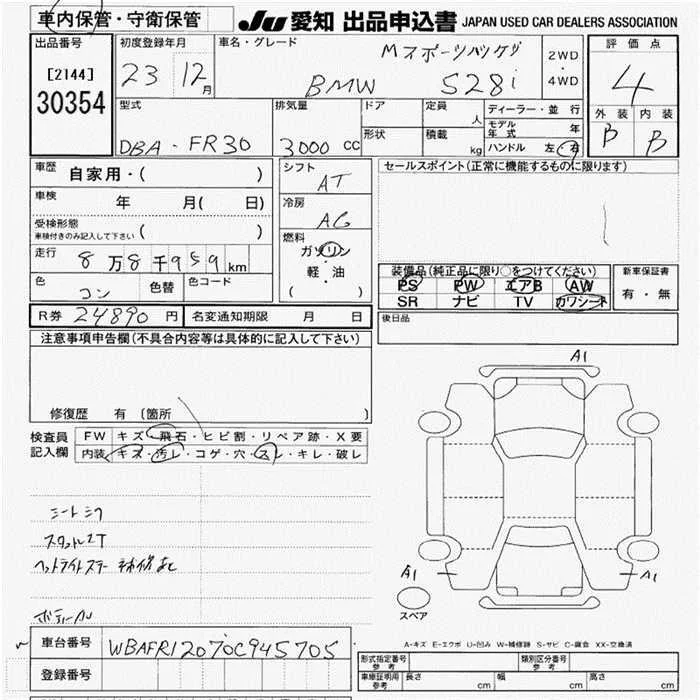 車内保管・守衛保管
JU 愛知 出品申込書 JAPAN USED CAR DEALERS ASSOCIATION
出品番号 初度登録年月 車名・グレード 評価点
[2144]
30354
23 12月
Mスポーツパッケジ
BMW 528i
2WD・4WD
4
外装 内装
B B
型式 排気量 ドア 定員 人 ディーラー・並行
DBA-FR30 3000 CC
形状 積載 kg
モデル年式 年
ハンドル 左・右
車歴 自家用・( )
車検 年 月( 日)
受検形態 ( )
車検付きのみ記入して下さい
走行 8万8千959km
色 コン 色替 色コード
シフト AT
冷房 AC
燃料 ガソリン・軽・油 ( )
セールスポイント(正常に機能するものに限ります)
装備品(純正品に限り○をつけてください)
PS PW エアB AW
SR ナビ TV カワシート
新車保証書 有・無
R券 24890円 名変通知期限 月 日
後日品
注意事項申告欄(不具合内容等は具体的に記入して下さい)
修復歴 有 (箇所 )
検査員記入欄
FW キズ・飛石・ヒビ割・リペア跡・X要
内装 キズ・汚レ・コゲ・穴・スレ・キレ・破レ
シートシワ
A1
A1
A1
スペア
A-キズ E-エクボ U-凹み W-補修跡 S-サビ C-腐食 XX-交換済
車台番号 WBAFR12070C945705
登録番号
形式指定番号 参考 類別区分番号 参考
車庫証明用 参考 長さ cm 幅 cm 高さ cm